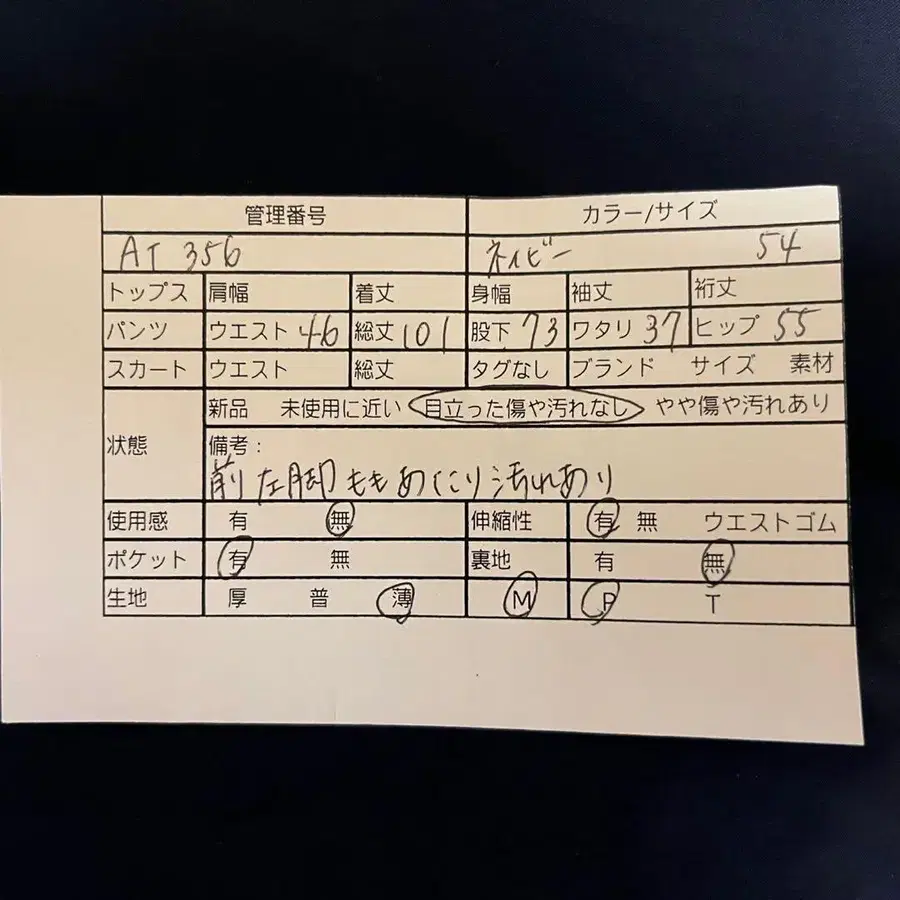 管理番号 カラー/サイズ
AT 356 ネイビー 54
トップス 肩幅 着丈 身幅 袖丈 裄丈
パンツ ウエスト 46 総丈 101 股下 73 ワタリ 37 ヒップ 55
スカート ウエスト 総丈 タグなし ブランド サイズ 素材
新品 未使用に近い 目立った傷や汚れなし やや傷や汚れあり
状態 備考:
前 左脚 もも あたり 汚れあり
使用感 有 無 伸縮性 有 無 ウエストゴム
ポケット 有 無 裏地 有 無
生地 厚 普 薄 M P T